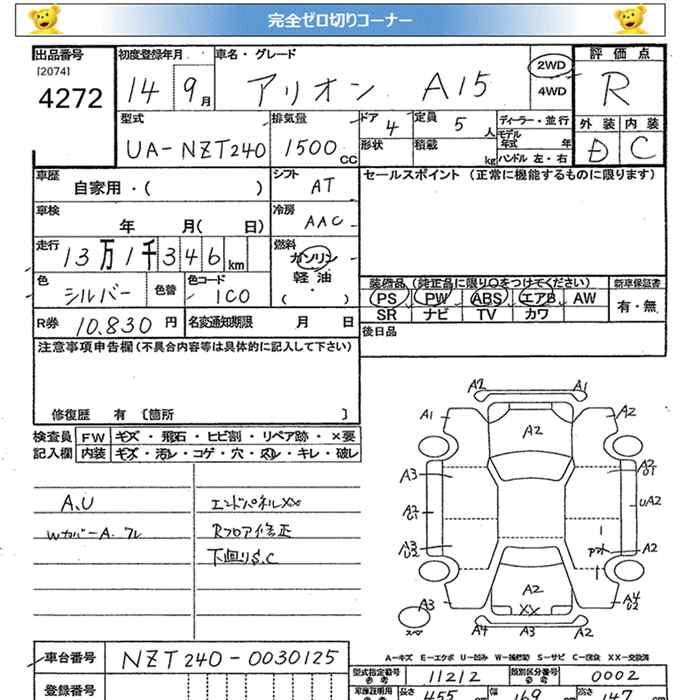 完全ゼロ切りコーナー
出品番号 初度登録年月 車名・グレード 評価点
[2074]
4272 14 9月 アリオン A15 2WD 4WD R
型式 排気量 ドア 定員 ディーラー・並行 外装 内装
UA-NZT240 1500CC 4 5人 モデル年式 年 D C
形状 積載 kg ハンドル 左・右
車歴 自家用・( ) シフト AT セールスポイント (正常に機能するものに限ります)
車検 年 月( 日) 冷房 AAC
走行 13万1千346km 燃料 ガソリン
軽油
( ・ )
色 シルバー 色替 色コード 1C0
装備品 (純正品に限り○をつけてください) 新車保証書
PS PW ABS エアB AW 有・無
SR ナビ TV カワ
R券 10,830円 名変通知期限 月 日 後日品
注意事項申告欄(不具合内容等は具体的に記入して下さい)
修復歴 有 [箇所 ]
検査員 FW キズ・飛石・ヒビ割・リペア跡・×要
記入欄 内装 キズ・汚レ・コゲ・穴・スレ・キレ・破レ
A.U エンドパネルXX
WカバーA.ワレ Rフロア修正
下回りS.C
A2 A1
A1 A2 A2
A3 A2 U1
A2 U1 UA2
A3 U2 A2
A2 XX
A3 A4 U2
スペア A4 A3 A2
A-キズ E-エクボ U-凹み W-補修跡 S-サビ C-腐食 XX-交換済
車台番号 NZT240-0030125
型式指定番号 11212 類別区分番号 0002
登録番号 長さ 455 幅 169 高さ 147